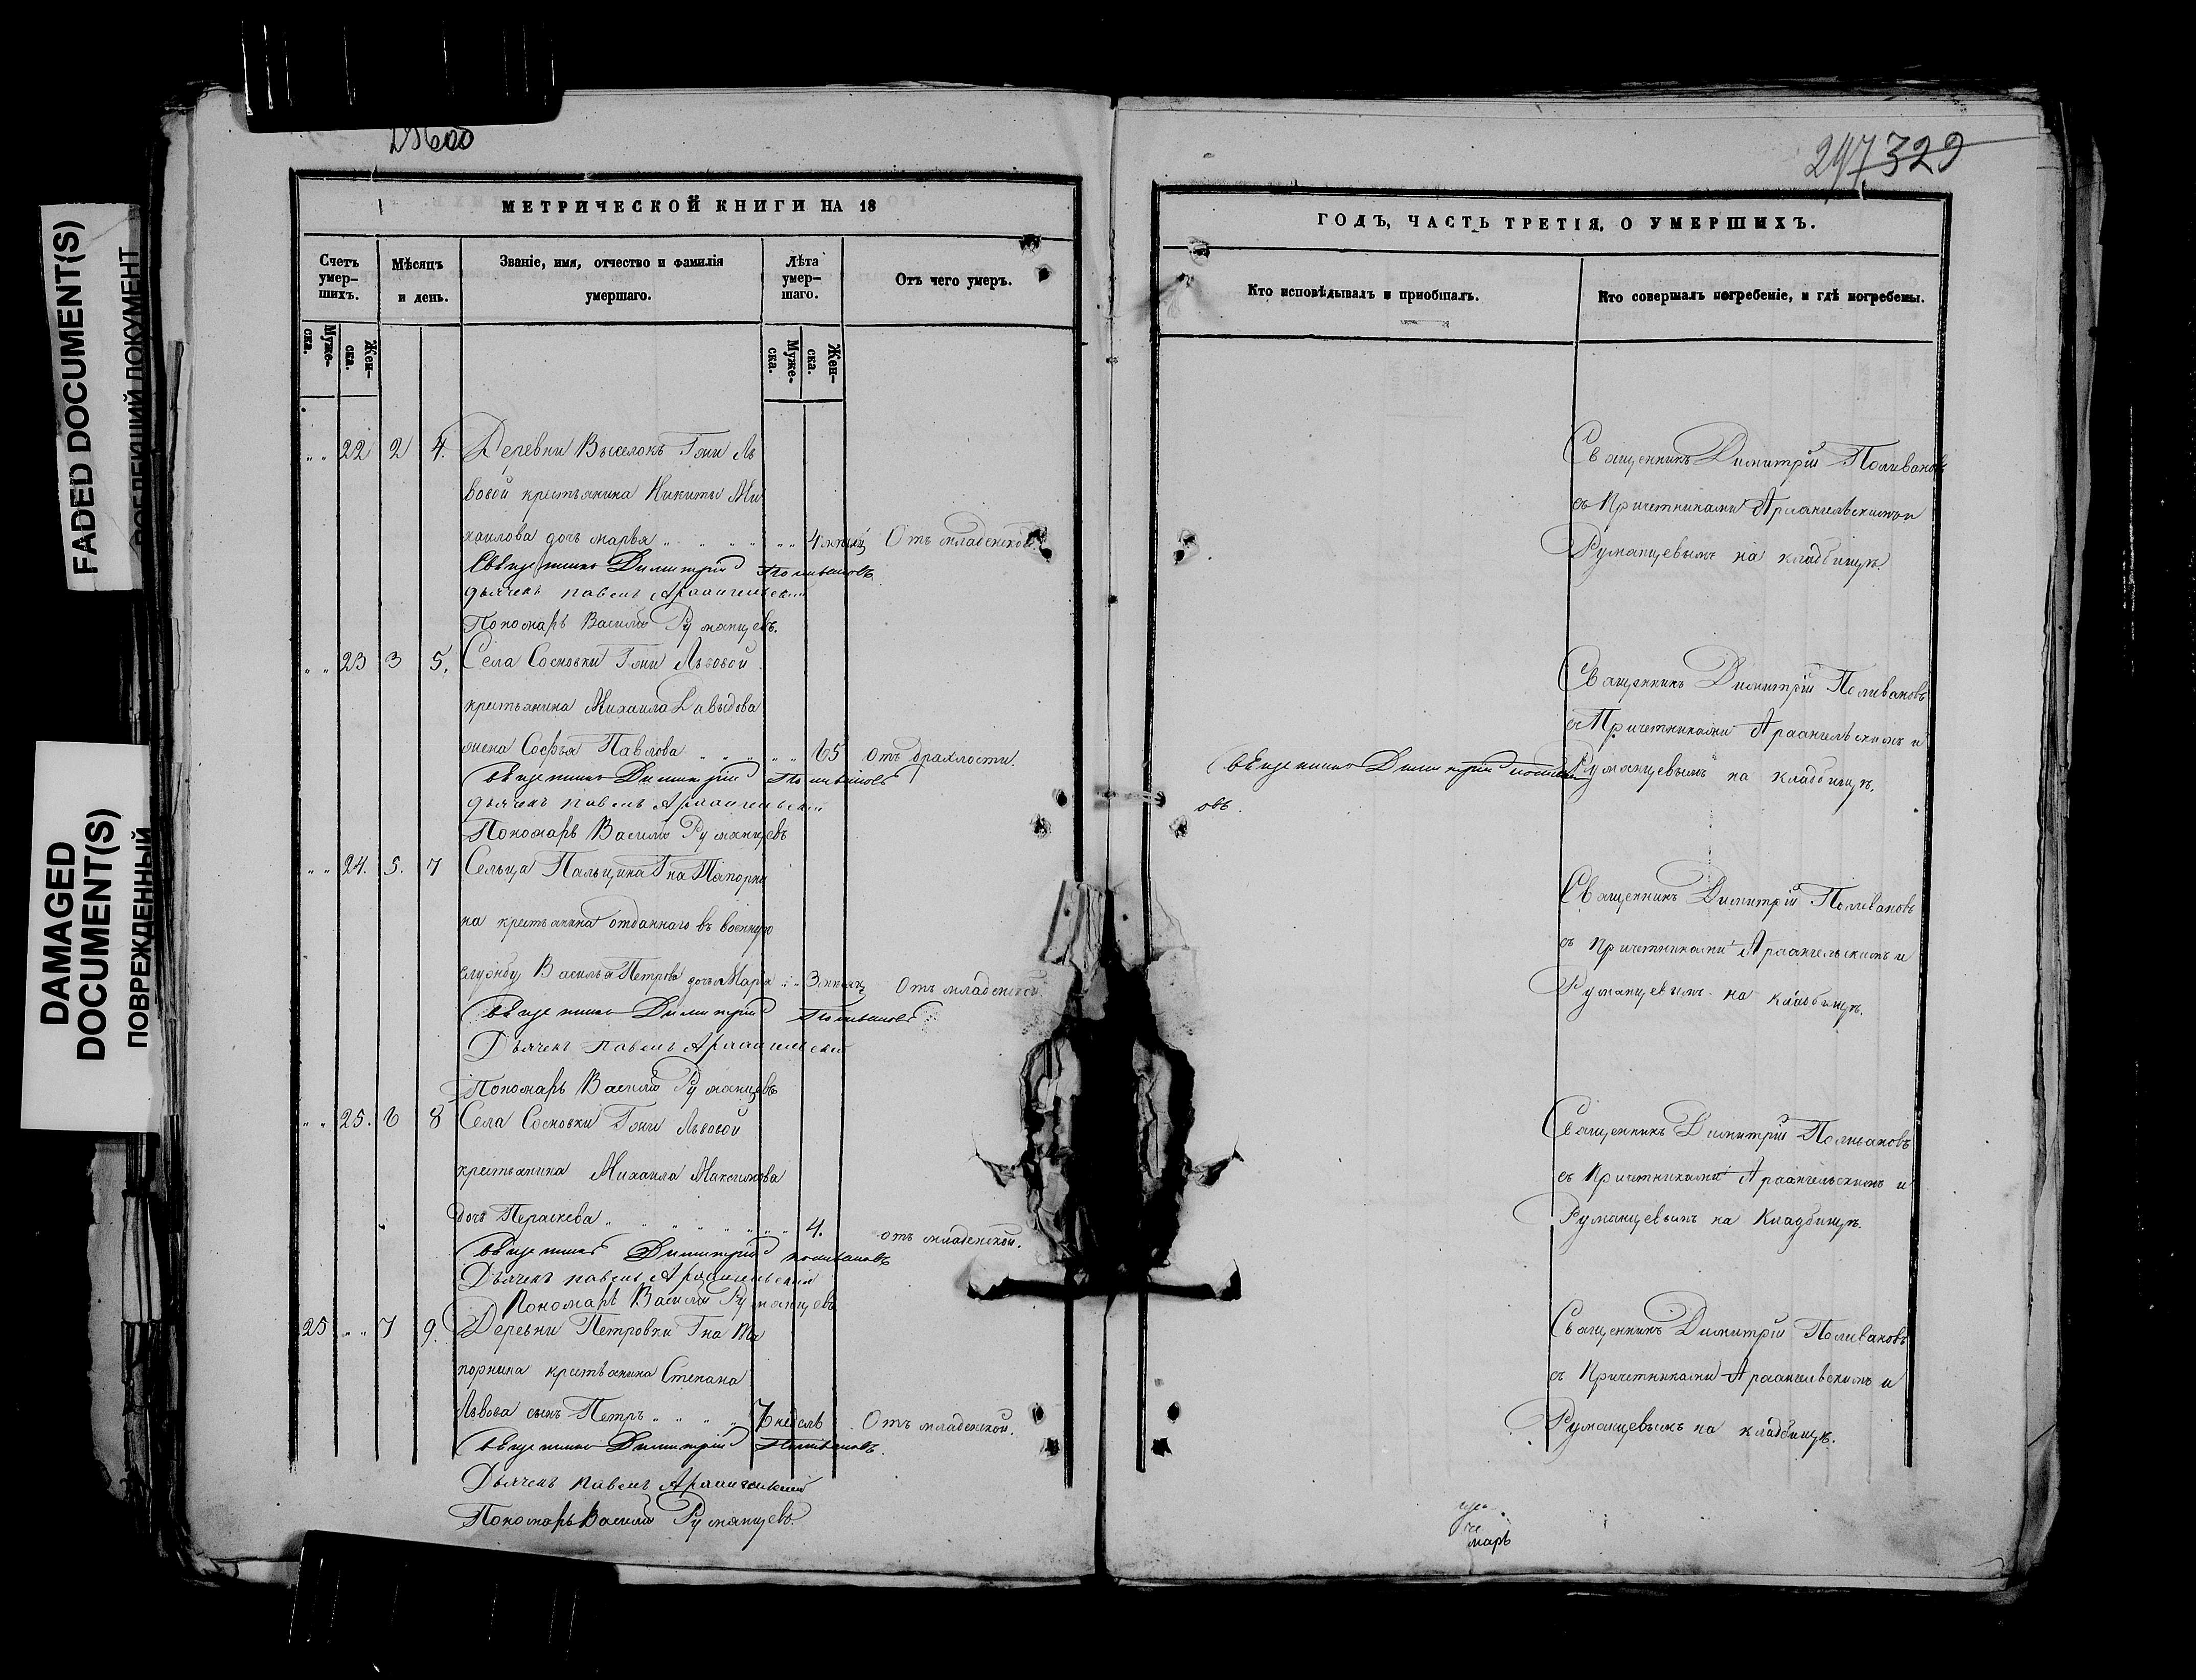 FADED DOCUMENT(S)
DAMAGED
DOCUMENT(S)
ПОВРЕЖДЕННЫЙ
247 329
МЕТРИЧЕСКОЙ КНИГИ НА 18
Счетъ умер-шихъ.
Мѣсяцъ и день.
Званіе, имя, отчество и фамилія умершаго.
Лѣта умер-шаго.
Отъ чего умеръ.
Муже-ска.
Жен-ска.
Муже-ска.
Жен-ска.
22 2 4. Деревни Выселокъ Гжи Ль
вовой крестьянина Никиты Ми
хаилова дочь марья 4 Отъ младенской
Священникъ Димитрій Поливановъ
дьячекъ павелъ Архангельскій
Пономарь Василій Румянцевъ.
23 3 5. Села Сосновки Гжи Львовой
крестьянина Михаила Давыдова
жена Софья Павлова 65 Отъ драхлости.
Священникъ Димитрій Поливановъ
дьячекъ павелъ Архангельскій
Пономарь Василій Румянцевъ
24. 5. 7 Сельца Пальцина Гна Тапорни
на крестьянина отданнаго въ военную
службу Василья Петрова дочь Марья 3 Отъ младенской
Священникъ Димитрій Поливановъ
Дьячекъ павелъ Архангельскій
Пономарь Василій Румянцевъ
25. 6 8 Села Сосновки Гжи Львовой
крестьянина Михаила Максимова
дочь Пераскева 4. отъ младенской.
Священникъ Димитрій поливановъ
Дьячекъ павелъ Архангельскій
Пономарь Василій Румянцевъ
25 7 9. Деревни Петровки Гна Та
порнина крестьянина Степана
Львова сынъ Петръ недель Отъ младенской.
Священникъ Димитрій Поливановъ.
Дьячекъ павелъ Архангельскій
Пономарь Василій Румянцевъ.
ГОДЪ, ЧАСТЬ ТРЕТІЯ, О УМЕРШИХЪ.
Кто исповѣдывалъ и приобщалъ.
Кто совершалъ погребеніе, и гдѣ погребены.
Священникъ Димитрій Поливановъ
съ Причетниками Архангельскимъ и
Румянцевымъ на кладбищѣ.
Священникъ Димитрій Поливановъ
съ Причетниками Архангельскимъ и
Священникъ Димитрій поливан Румянцевымъ на кладбищѣ.
овъ.
Священникъ Димитрій Поливановъ
съ Причетниками Архангельскимъ и
Румянцевымъ на кладбищѣ.
Священникъ Димитрій Поливановъ
съ Причетниками Архангельскимъ и
Румянцевымъ на Кладбищѣ.
Священникъ Димитрій Поливановъ
съ Причетниками Архангельскимъ и
Румянцевымъ на кладбищѣ.
марь